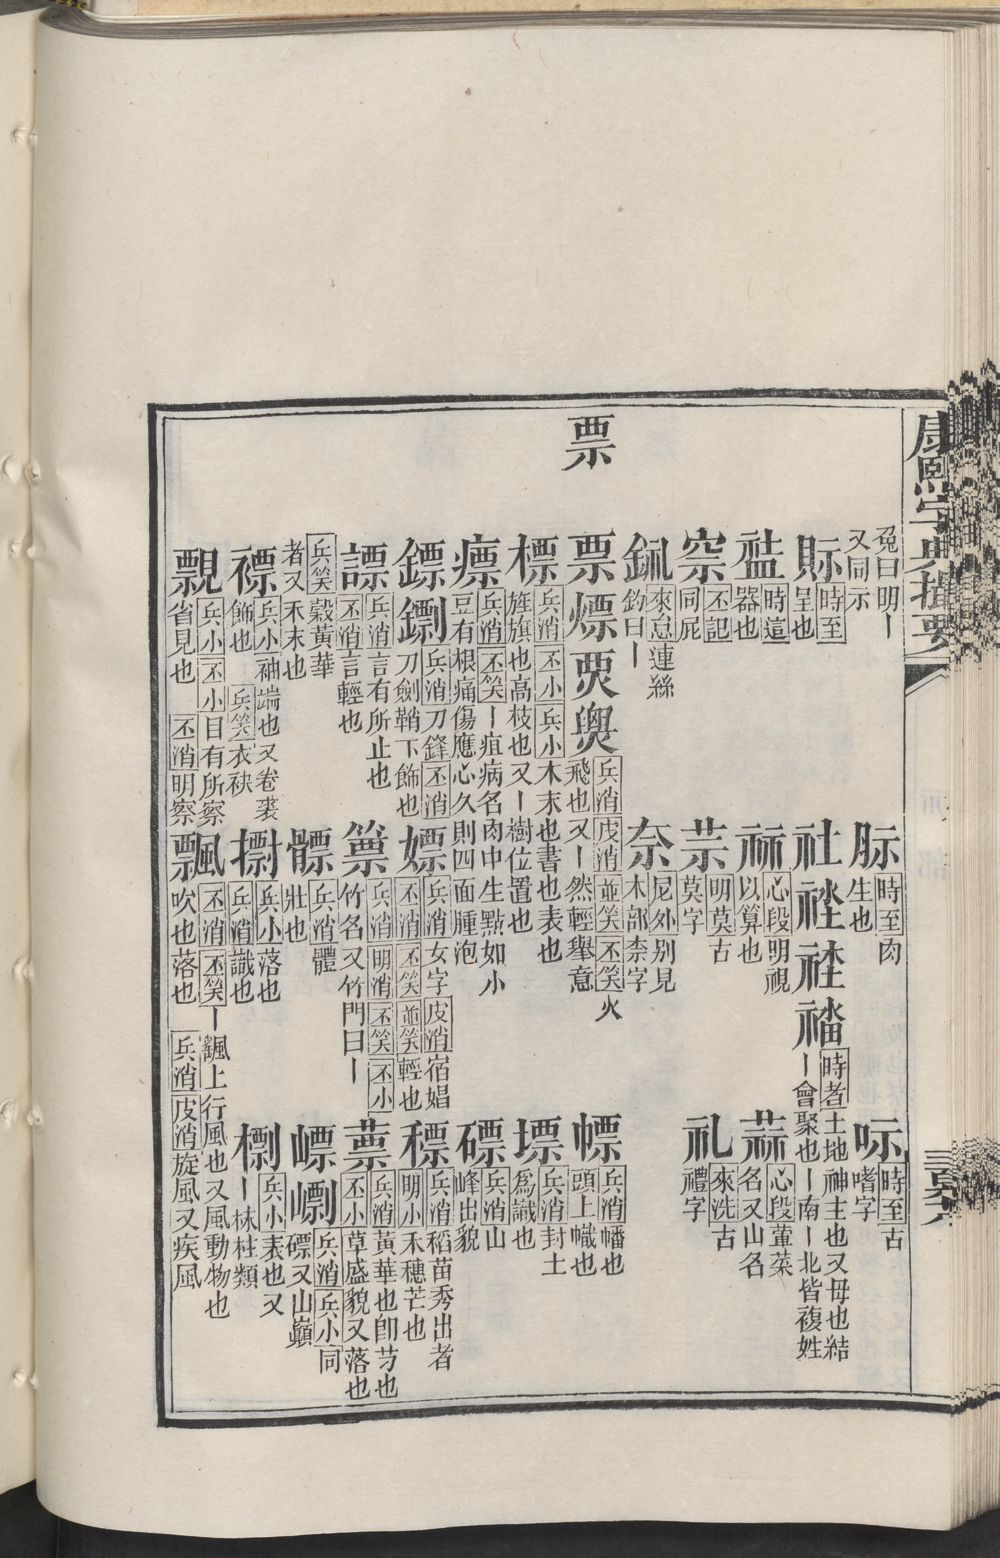 康熙字典撮要
兔曰明丨又同示
時至肉生也
呩 時至古嗜字
時至呈也
社 時者土地神主也又母也結丨會聚也丨南丨北皆複姓
時這器也
祘 心段明視以算也
蒜 心段葷菜名又山名
丕記同屁
明莫古莫字
礼 來洗古禮字
來怠連絲釣曰丨
柰 尼外別見木部柰字
票
票 熛 㷠 兵消 皮消 並笑 丕笑 火飛也又丨然輕舉意
幖 兵消幡也頭上幟也
標 兵消 丕小 兵小 木末也書也表也旌旗也高枝也又丨樹位置也
墂 兵消封土為識也
瘭 兵消 丕笑 丨疽病名肉中生點如小豆有根痛傷應心久則四面腫泡
磦 兵消山峰出貌
鏢 兵消刀鋒 丕消刀劍鞘下飾也
嫖 兵消女字 皮消宿娼 丕消 丕笑 並笑輕也
穮 兵消稻苗秀出者 明小禾穗芒也
謤 兵消言有所止也 丕消言輕也
篻 兵消 明消 丕笑 丕小 竹名又竹門曰丨
蔈 兵消黃華也卽芀也 丕小草盛貌又落也
兵笑穀黃華者又禾末也
髟 兵消體壯也
嶛 兵消 兵小同磦又山巔
褾 兵小袖端也又卷裘飾也 兵笑衣袂
摽 兵小落也 兵消識也
標 兵小表也又丨𣏌柱類
覹 兵小 丕小目有所察省見也 丕消明察
飄 丕消 丕笑 丨颻上行風也又風動物也吹也落也 兵消 皮消旋風又疾風